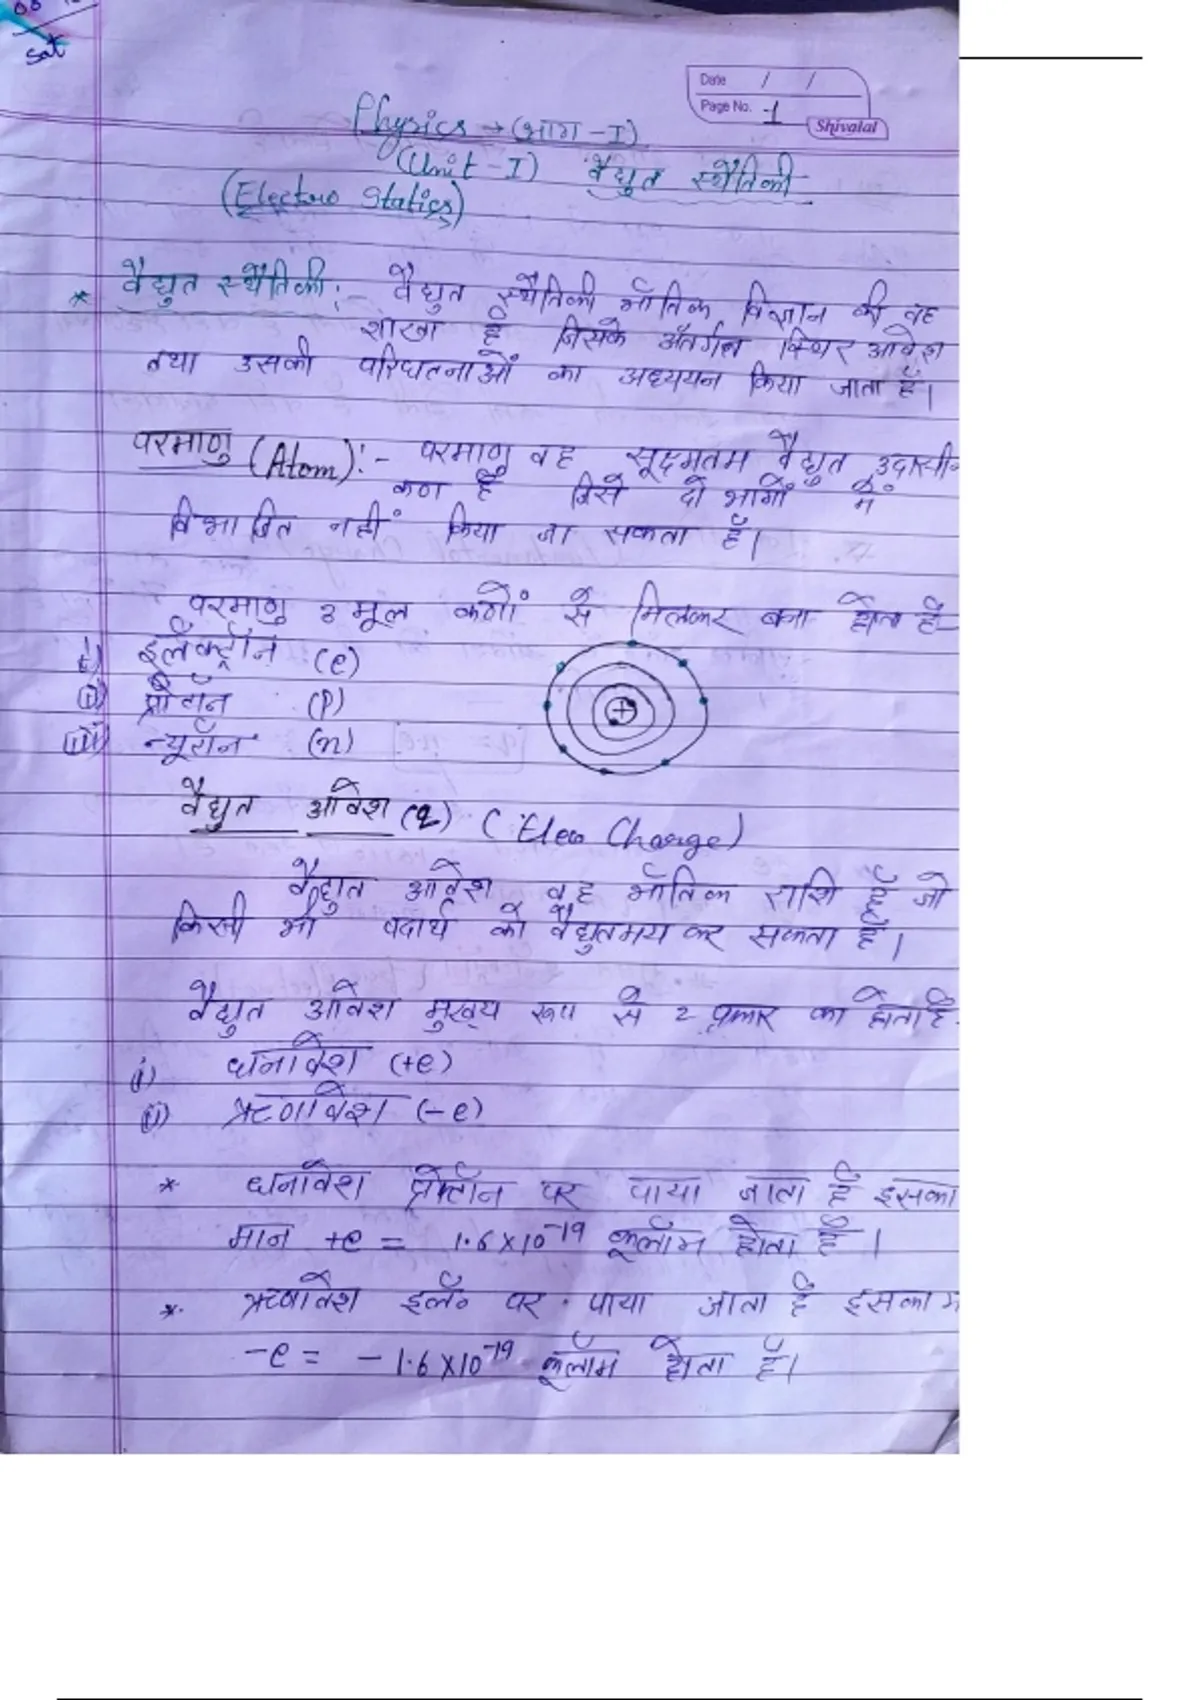 Sat
Date / /
Page No. 1
Shivalal
Physics → (भाग - I)
(Unit - I) वैद्युत स्थैतिकी
(Electro Statics)
* वैद्युत स्थैतिकी :- वैद्युत स्थैतिकी भौतिक विज्ञान की वह
शाखा है जिसके अंतर्गत स्थिर आवेश
तथा उसकी परिघटनाओं का अध्ययन किया जाता है।
परमाणु (Atom):- परमाणु वह सूक्ष्मतम वैद्युत उदासीन
कण है जिसे दो भागों में
विभाजित नहीं किया जा सकता है।
परमाणु 3 मूल कणों से मिलकर बना होता है-
i) इलेक्ट्रॉन (e)
ii) प्रोटॉन (p)
iii) न्यूट्रॉन (n)
+
वैद्युत आवेश (q) (Elec Charge)
वैद्युत आवेश वह भौतिक राशि है जो
किसी भी पदार्थ को वैद्युतमय कर सकता है।
वैद्युत आवेश मुख्य रूप से 2 प्रकार का होता है
(i) धनावेश (+e)
(ii) ऋणावेश (-e)
* धनावेश प्रोटॉन पर पाया जाता है इसका
मान +e = 1.6×10⁻¹⁹ कूलॉम होता है।
* ऋणावेश इले० पर पाया जाता है इसका म
-e = -1.6×10⁻¹⁹ कूलॉम होता है।